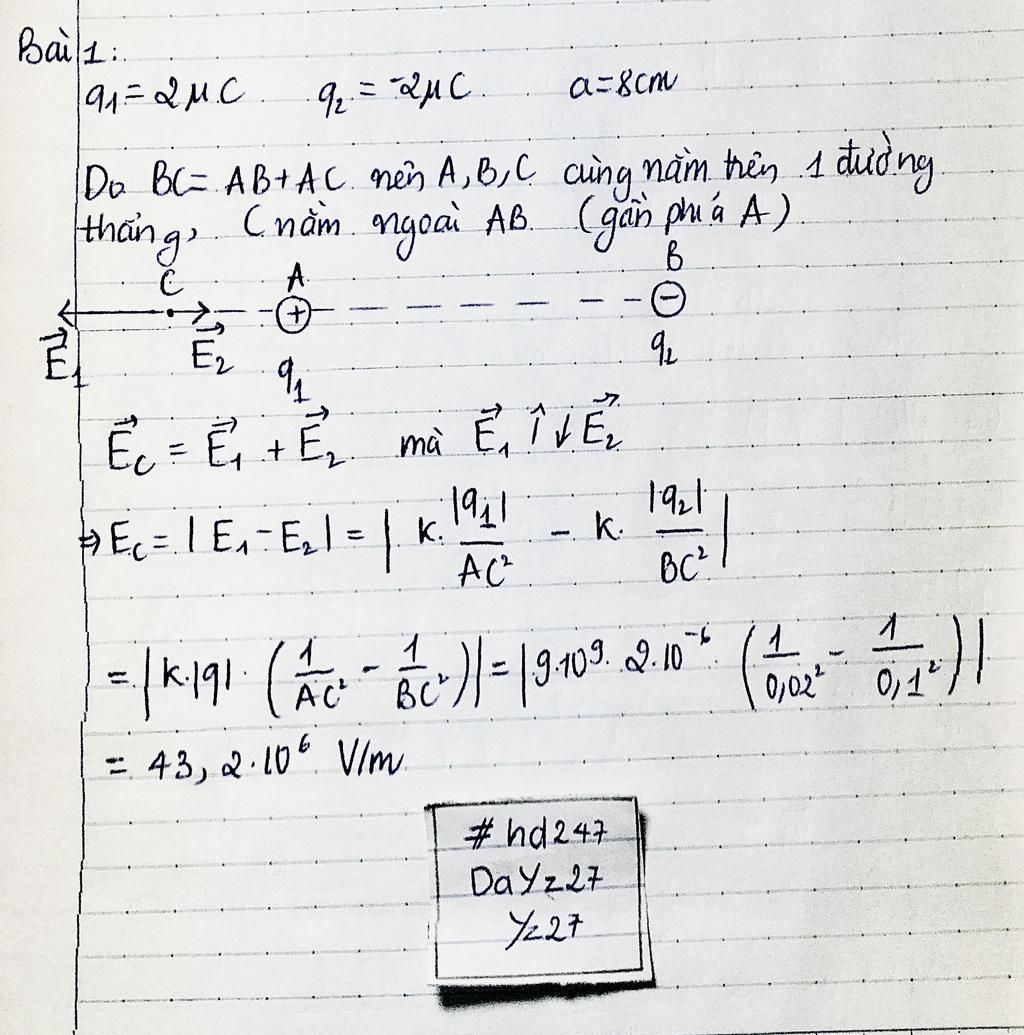 Bài 1:
q₁ = 2μC q₂ = -2μC a = 8cm
Do BC = AB + AC nên A, B, C cùng nằm trên 1 đường
thẳng, C nằm ngoài AB (gần phía A)
C A B
+ −
E⃗₁ E⃗₂ q₁ q₂
E⃗c = E⃗₁ + E⃗₂ mà E⃗₁ ↑↓ E⃗₂
⇒ Ec = |E₁ - E₂| = | k. |q₁|/AC² - k. |q₂|/BC² |
= | k.|q|. (1/AC² - 1/BC²) | = | 9.10⁹. 2.10⁻⁶ (1/0,02² - 1/0,1²) |
= 43,2.10⁶ V/m
#hd247
DaYz27
Yz27